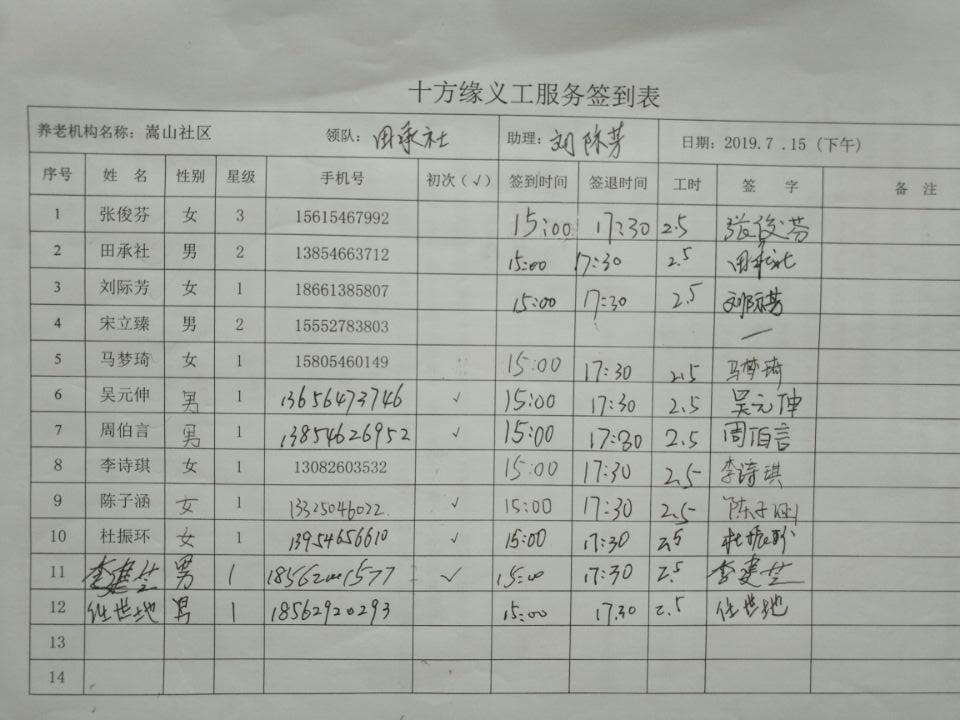 十方缘义工服务签到表
养老机构名称：嵩山社区 领队：田承社 助理：刘际芳 日期：2019.7.15（下午）
序号 姓名 性别 星级 手机号 初次（√） 签到时间 签退时间 工时 签字 备注
1 张俊芬 女 3 15615467992 15:00 17:30 2.5 张俊芬
2 田承社 男 2 13854663712 15:00 17:30 2.5 田承社
3 刘际芳 女 1 18661385807 15:00 17:30 2.5 刘际芳
4 宋立臻 男 2 15552783803 —
5 马梦琦 女 1 15805460149 15:00 17:30 2.5 马梦琦
6 吴元伸 男 1 13656473746 √ 15:00 17:30 2.5 吴元伸
7 周伯言 男 1 13854626952 √ 15:00 17:30 2.5 周伯言
8 李诗琪 女 1 13082603532 15:00 17:30 2.5 李诗琪
9 陈子涵 女 1 13325046022 √ 15:00 17:30 2.5 陈子涵
10 杜振环 女 1 13954656610 √ 15:00 17:30 2.5 杜振环
11 李建芝 男 1 √ 15:00 17:30 2.5 李建芝
12 任世地 男 1 18562920293 15:00 17.30 2.5 任世地
13
14